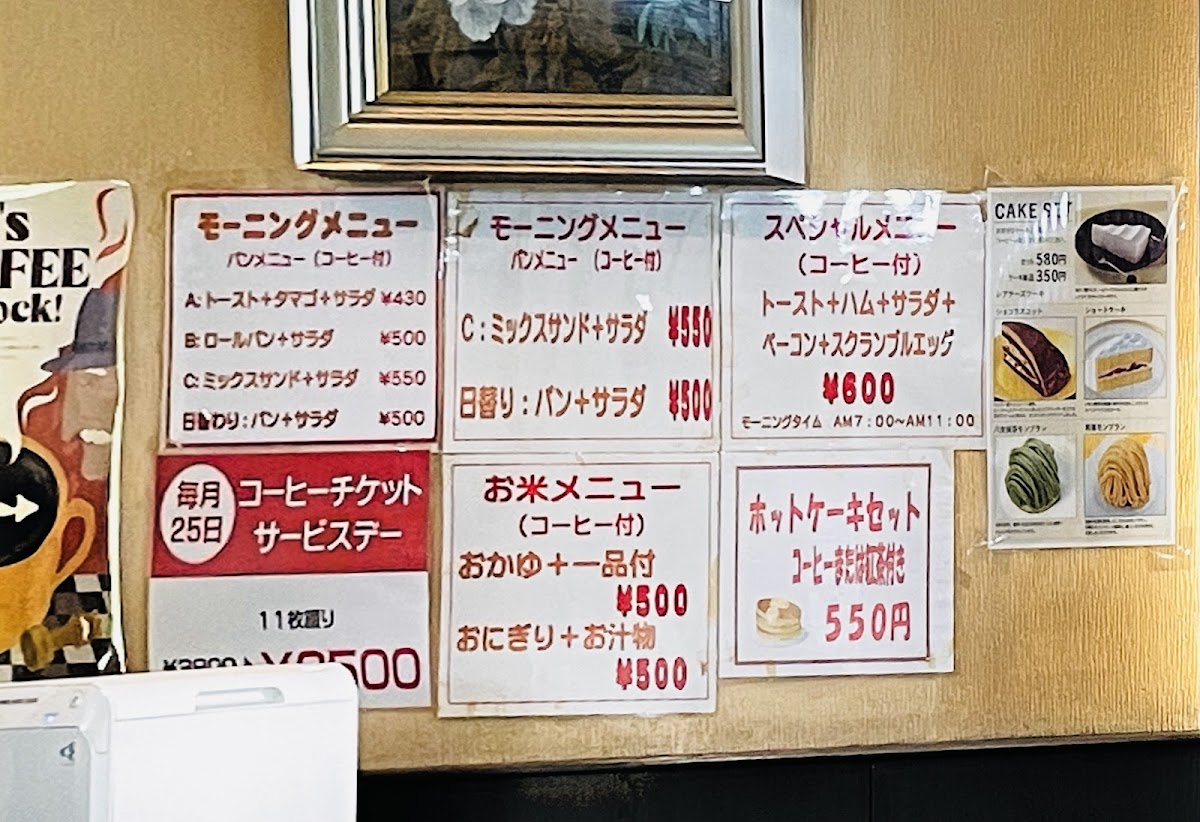 's
FEE
ock!
モーニングメニュー
パンメニュー（コーヒー付）
A:トースト+タマゴ+サラダ ¥430
B:ロールパン+サラダ ¥500
C:ミックスサンド+サラダ ¥550
日替わり:パン+サラダ ¥500
モーニングメニュー
パンメニュー （コーヒー付）
C:ミックスサンド+サラダ ¥550
日替り:パン+サラダ ¥500
スペシャルメニュー
（コーヒー付）
トースト+ハム+サラダ+
ベーコン+スクランブルエッグ
¥600
モーニングタイム AM7:00~AM11:00
CAKE SET
セット 580円
ケーキ単品 350円
レアチーズケーキ
ショコラズコット
ショートケーキ
毎月
25日
コーヒーチケット
サービスデー
11枚綴り
500
お米メニュー
（コーヒー付）
おかゆ+一品付
¥500
おにぎり+お汁物
¥500
ホットケーキセット
コーヒーまたは紅茶付き
550円